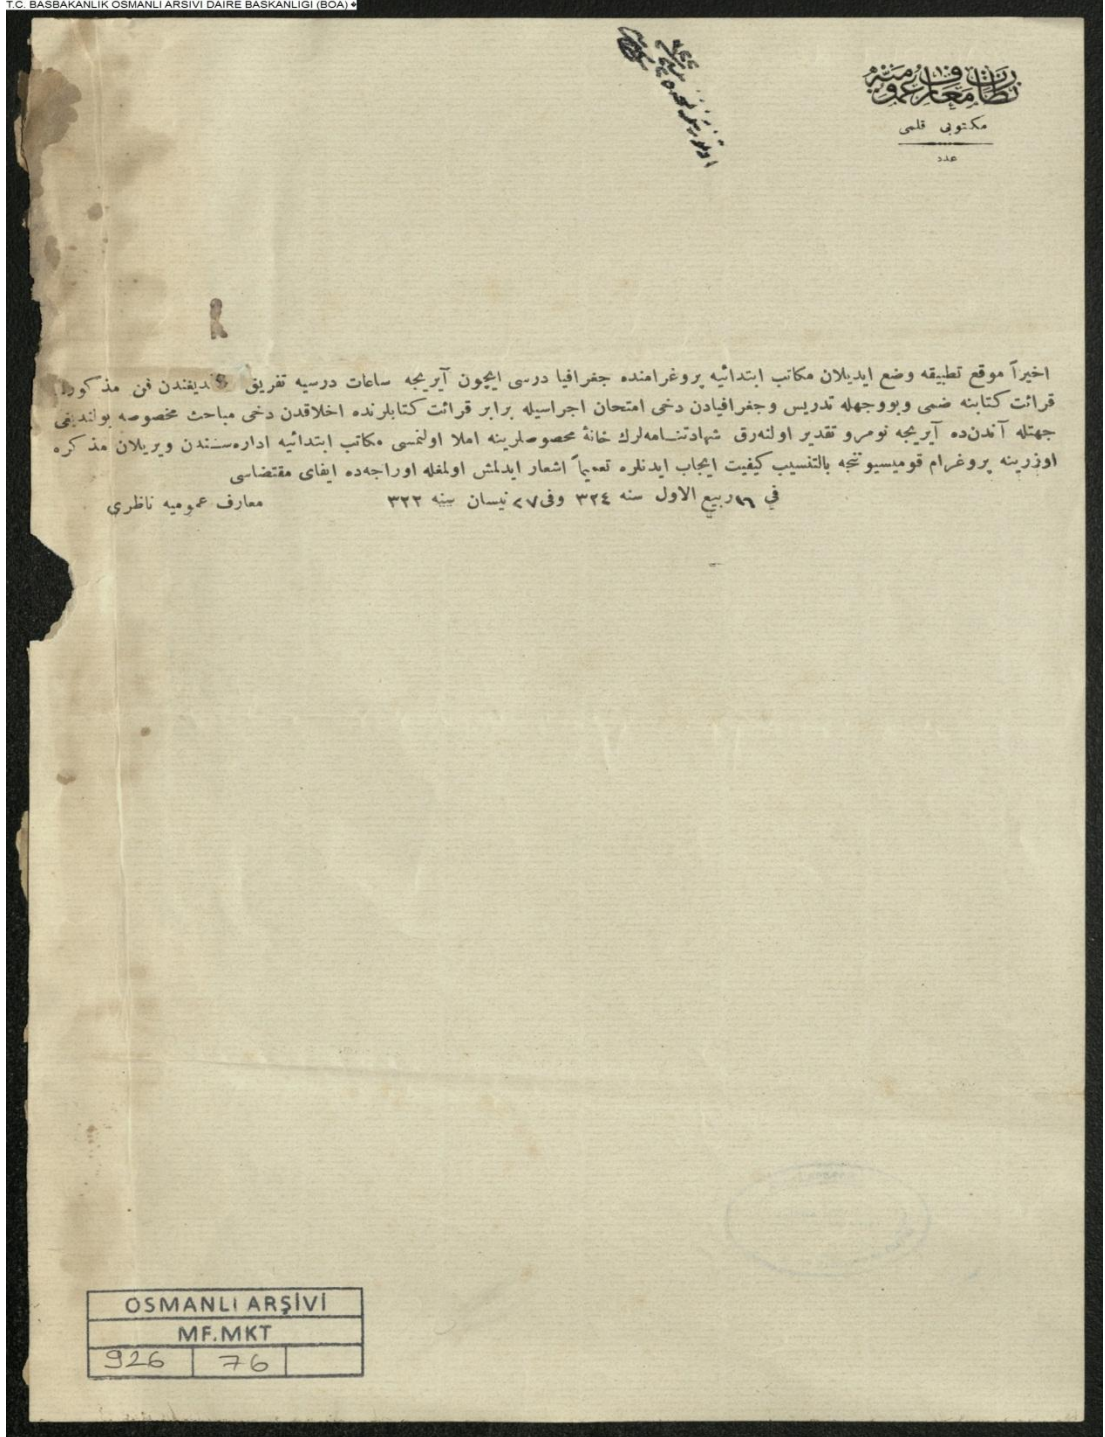 T.C. BASBAKANLIK OSMANLI ARSIVI DAIRE BASKANLIGI (BOA)
نظارت معارف عموميه
مكتوبى قلمى
عدد
اخيراً موقع تطبيقه وضع ايديلان مكاتب ابتدائيه پروغرامنده جغرافيا درسى ايچون آيريجه ساعات درسيه تفريق ديغندن فن مذكورك
قرائت كتابنه ضمى وبووجهله تدريس وجغرافيادن دخى امتحان اجراسيله برابر قرائت كتابلرنده اخلاقدن دخى مباحث مخصوصه بولنديغى
جهتله آندن‌ده آيريجه نومرو تقدير اولنه‌رق شهادتنامه‌لرك خانهٔ مخصوصلرينه املا اولنمسى مكاتب ابتدائيه اداره‌سندن ويريلان مذكره
اوزرينه پروغرام قوميسيوننجه بالتنسيب كيفيت ايجاب ايدنلره تعميماً اشعار ايدلمش اولمغله اوراجه‌ده ايفاى مقتضاسى
فى ١٦ ربيع الاول سنه ٣٢٤ وفى ٢٧ نيسان سنه ٣٢٢
معارف عموميه ناظرى
OSMANLI ARŞİVİ
MF.MKT
926 76